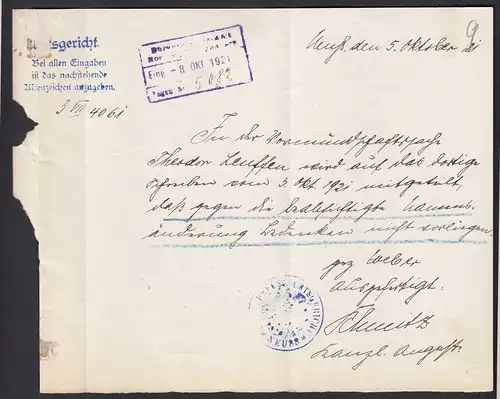 Amtsgericht.
Bei allen Eingaben
ist das nachstehende
Aktenzeichen anzugeben.
3 VII 4061
Eing. - 8. OKT 1921
5082
9
Neuß, den 5. Oktober 21
In der Vormundschaftssache
Theodor Leuffen wird auf das dortige
Schreiben vom 3. Okt. 1921 mitgeteilt,
daß gegen die beabsichtigte Namens-
änderung Bedenken nicht vorliegen.
gez Weber
Ausgefertigt.
Schmitz
Kanzl. Angest.
AMTSGERICHT
NEUSS